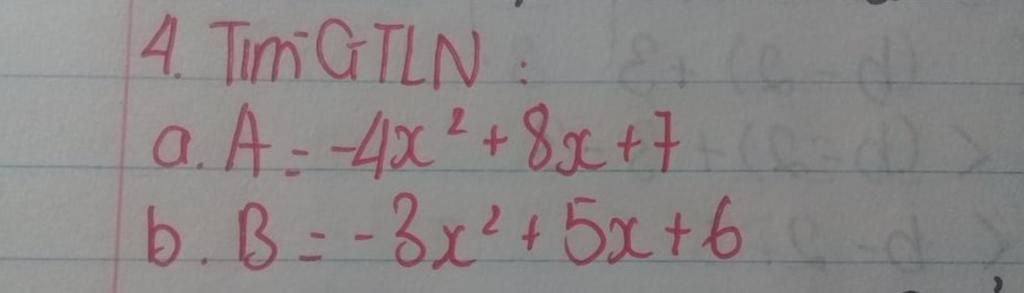 4. Tìm GTLN :
a. A = -4x² + 8x + 7
b. B = -3x² + 5x + 6